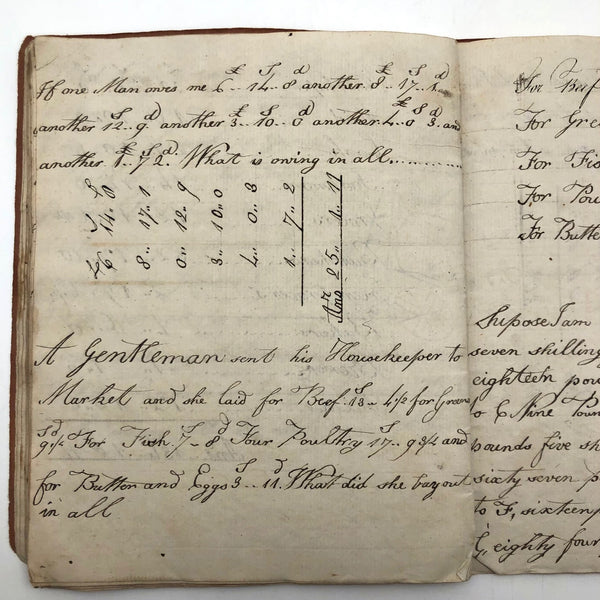 £ S d £ S d
If one Man owes me 6.. 14.. 8 another 8.. 17.. 1
S d £ S d £ S d
another 12.. 9 another 3.. 10.. 0 another 4.. 0 3 and
£ S d
another 1.. 7 2.. What is owing in all............
£ S D
6.. 14.. 8
8.. 17.. 1
0.. 12.. 9
3.. 10.. 0
4.. 0.. 3
1.. 7.. 2
Ansr 25.. 1.. 11
A Gentleman sent his Housekeeper to
Market and she laid for Beef 13.. 4 1/2 for Greens
S d
9 1/2 For Fish 7.. 8 Four Poultry 17.. 9 3/4 and
for Butter and Eggs 3.. 11. What did she lay out
in all
For Beef
For Gre
For Fis
For Pou
For Butter
Supose I am
seven shilling
eighteen poun
to C Nine Poun
pounds five sh
sixty seven p
to F, sixteen p
G, eighty four